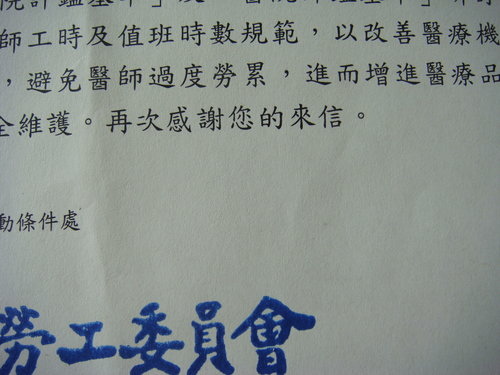 師工時及值班時數規範，以改善醫療機
，避免醫師過度勞累，進而增進醫療品
全維護。再次感謝您的來信。
動條件處
勞工委員會